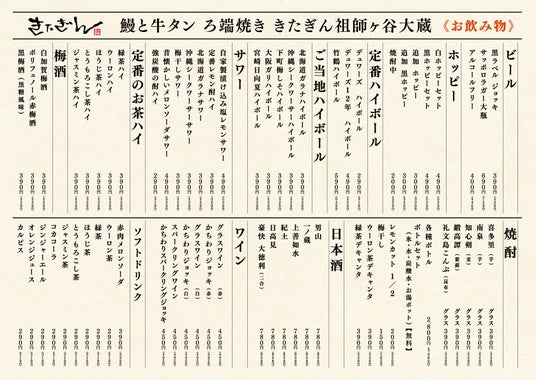 きたぎん
鰻と牛タン ろ端焼き きたぎん祖師ヶ谷大蔵
《お飲み物》
ビール
黒ラベル ジョッキ 490円
サッポロラガー大瓶 690円
アルコールフリー 390円
ホッピー
白ホッピーセット 490円
黒ホッピーセット 490円
追加 白ホッピー
追加 黒ホッピー 300円
焼酎中 200円
定番ハイボール
デュワーズ ハイボール 290円
デュワーズ12年 ハイボール 490円
竹鶴ハイボール 590円
ご当地ハイボール
北海道ガラナハイボール 390円
沖縄シークワーサーハイボール 390円
下町梅しそハイボール 390円
大阪ガリハイボール 390円
宮崎日向夏ハイボール 390円
サワー
自家製漬け込み塩レモンサワー 390円
定番レモン酎ハイ
北海道ガラナサワー 390円
沖縄シークワーサーサワー 390円
梅干しサワー 390円
昔懐かしいメロンソーダサワー 390円
強炭酸の酎ハイ 290円
定番のお茶ハイ
緑茶ハイ 390円
ウーロンハイ 390円
ほうじ茶ハイ 390円
とうもろこし茶ハイ 390円
ジャスミン茶ハイ 390円
梅酒
白加賀梅酒 390円
ポリフェノール赤梅酒 390円
黒梅酒（黒糖風味） 390円
焼酎
喜多里（芋） グラス390円
南泉（芋） グラス390円
知心剣（麦） グラス390円
鍛高譚（紫蘇） グラス390円
礼文島こんぶ（昆布） グラス390円
各種ボトル 2,800円
ボトルセット
（氷・水・炭酸水・お湯ポット）【無料】
レモンカット1／2 200円
梅干し 150円
ウーロン茶デキャンタ 390円
緑茶デキャンタ 390円
日本酒
男山 780円
一ノ蔵 780円
上善如水 780円
紀土 780円
日高見 780円
豪快 大徳利（二合） 780円
ワイン
グラスワイン（赤） 450円
かちわりジョッキ（赤） 450円
グラスワイン（白） 450円
かちわりジョッキ（白） 450円
スパークリングワイン 450円
かちわりスパークリングジョッキ 450円
ソフトドリンク
赤肉メロンソーダ 390円
ウーロン茶 290円
緑茶 290円
ほうじ茶 290円
とうもろこし茶 290円
ジャスミン茶 290円
コカコーラ 290円
ジンジャーエール 290円
オレンジジュース 290円
カルピス 290円